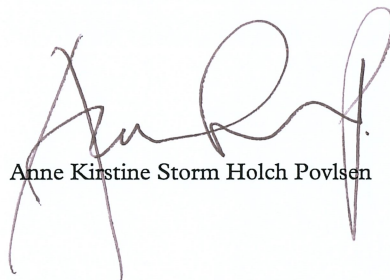 Anne Kirstine Storm Holch Povlsen